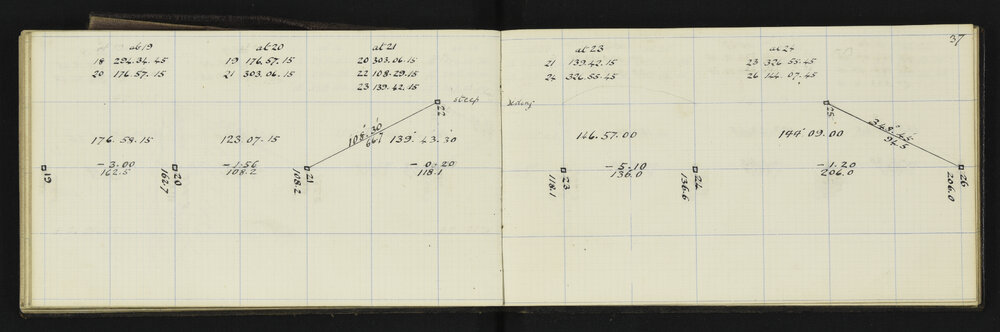 37
at 19
18 294.34.45
20 176.57.15
at 20
19 176.57.15
21 303.06.15
at 21
20 303.06.15
22 108.29.15
23 139.42.15
at 23
21 139.42.15
24 326.55.45
at 24
23 326.55.45
26 144.07.45
22
steep
25
108.30
667
348.45
945
176.58.15
123.07.15
139.43.30
146.57.00
144.09.00
-3.00
162.5
-1.56
108.2
-0.20
118.1
-5.10
136.0
-1.20
206.0
19
20
162.7
21
108.2
23
118.1
24
136.6
26
206.0